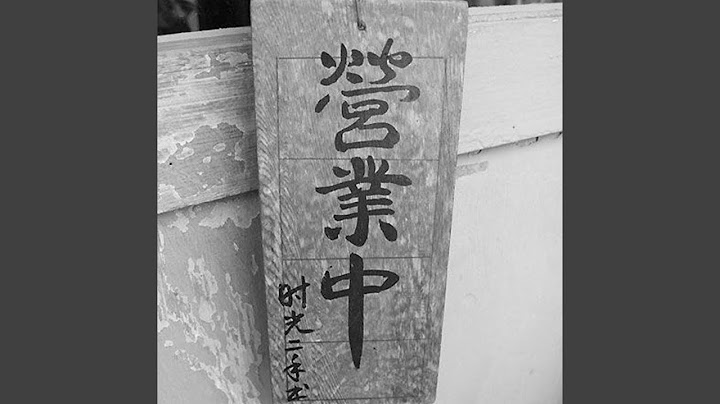 營業中
时光二手书